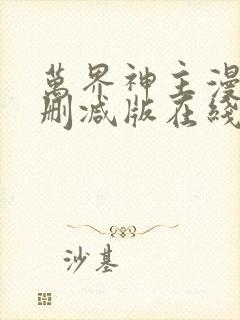 萬界神主漫
刪減版在綫
沙基